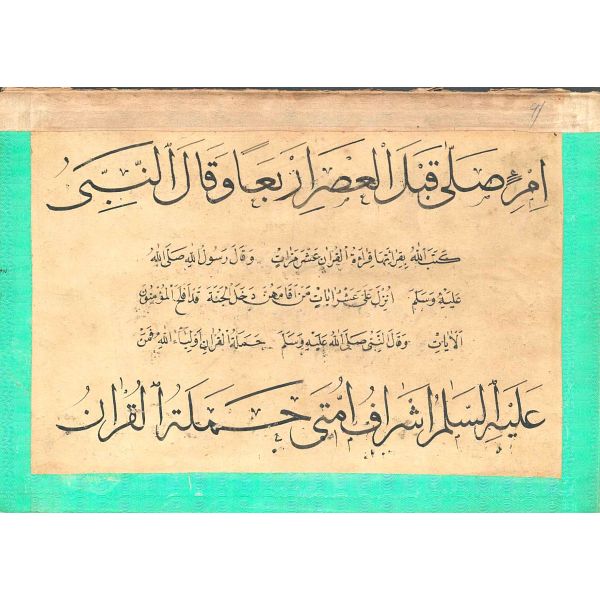 امْرِءٍ صَلَّى قَبْلَ الْعَصْرِ اَرْبَعًا وَقَالَ النَّبِيُّ
كَتَبَ اللهُ بِقِرَائَتِهَا قِرَاءَةَ الْقُرْاٰنِ عَشْرَ مَرَّاتٍ وَقَالَ رَسُولُ اللهِ صَلَّى اللهُ
عَلَيْهِ وَسَلَّمَ اُنْزِلَ عَلَىَّ عَشْرُ اٰيَاتٍ مَنْ اَقَامَهُنَّ دَخَلَ الْجَنَّةَ قَدْ اَفْلَحَ الْمُؤْمِنُونَ
الْاٰيَاتِ وَقَالَ النَّبِيُّ صَلَّى اللهُ عَلَيْهِ وَسَلَّمَ حَمَلَةُ الْقُرْاٰنِ اَوْلِيَاءُ اللهِ فَمَنْ
عَلَيْهِ السَّلَامُ اَشْرَافُ اُمَّتِى حَمَلَةُ الْقُرْاٰنِ